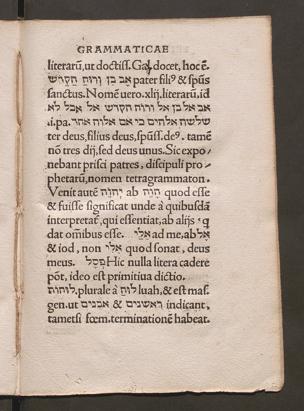 GRAMMATICAE
literarũ, ut doctiss. Gal docet, hoc ẽ.
אב בן ורוח הקדש pater filiꝰ & spũs
sanctus. Nomẽ uero. xlij. literarũ, id
אב אל בן אל ורוח הקדש אל אבל לא
שלשה אלהים כי אם אלוה אחד .i. pa
ter deus, filius deus, spũss. deꝰ. tamẽ
nõ tres dij, sed deus unus. Sic expo
nebant prisci patres, discipuli pro
phetarũ, nomen tetragrammaton.
Venit autẽ יהוה ab הוה quod esse
& fuisse significat unde à quibusdã
interpretat̃, qui essentiat, ab alijs q
dat omĩbus esse. אלי me ad, ab אל
& iod, non אלי quod sonat, deus
meus. פסל Hic nulla litera cadere
põt, ideo est primitiua dictio.
לוחות. plurale à לוח luah, & est mas
gen. ut ראשנים & אבנים indicant,
tametsi fœm. terminationẽ habeat.